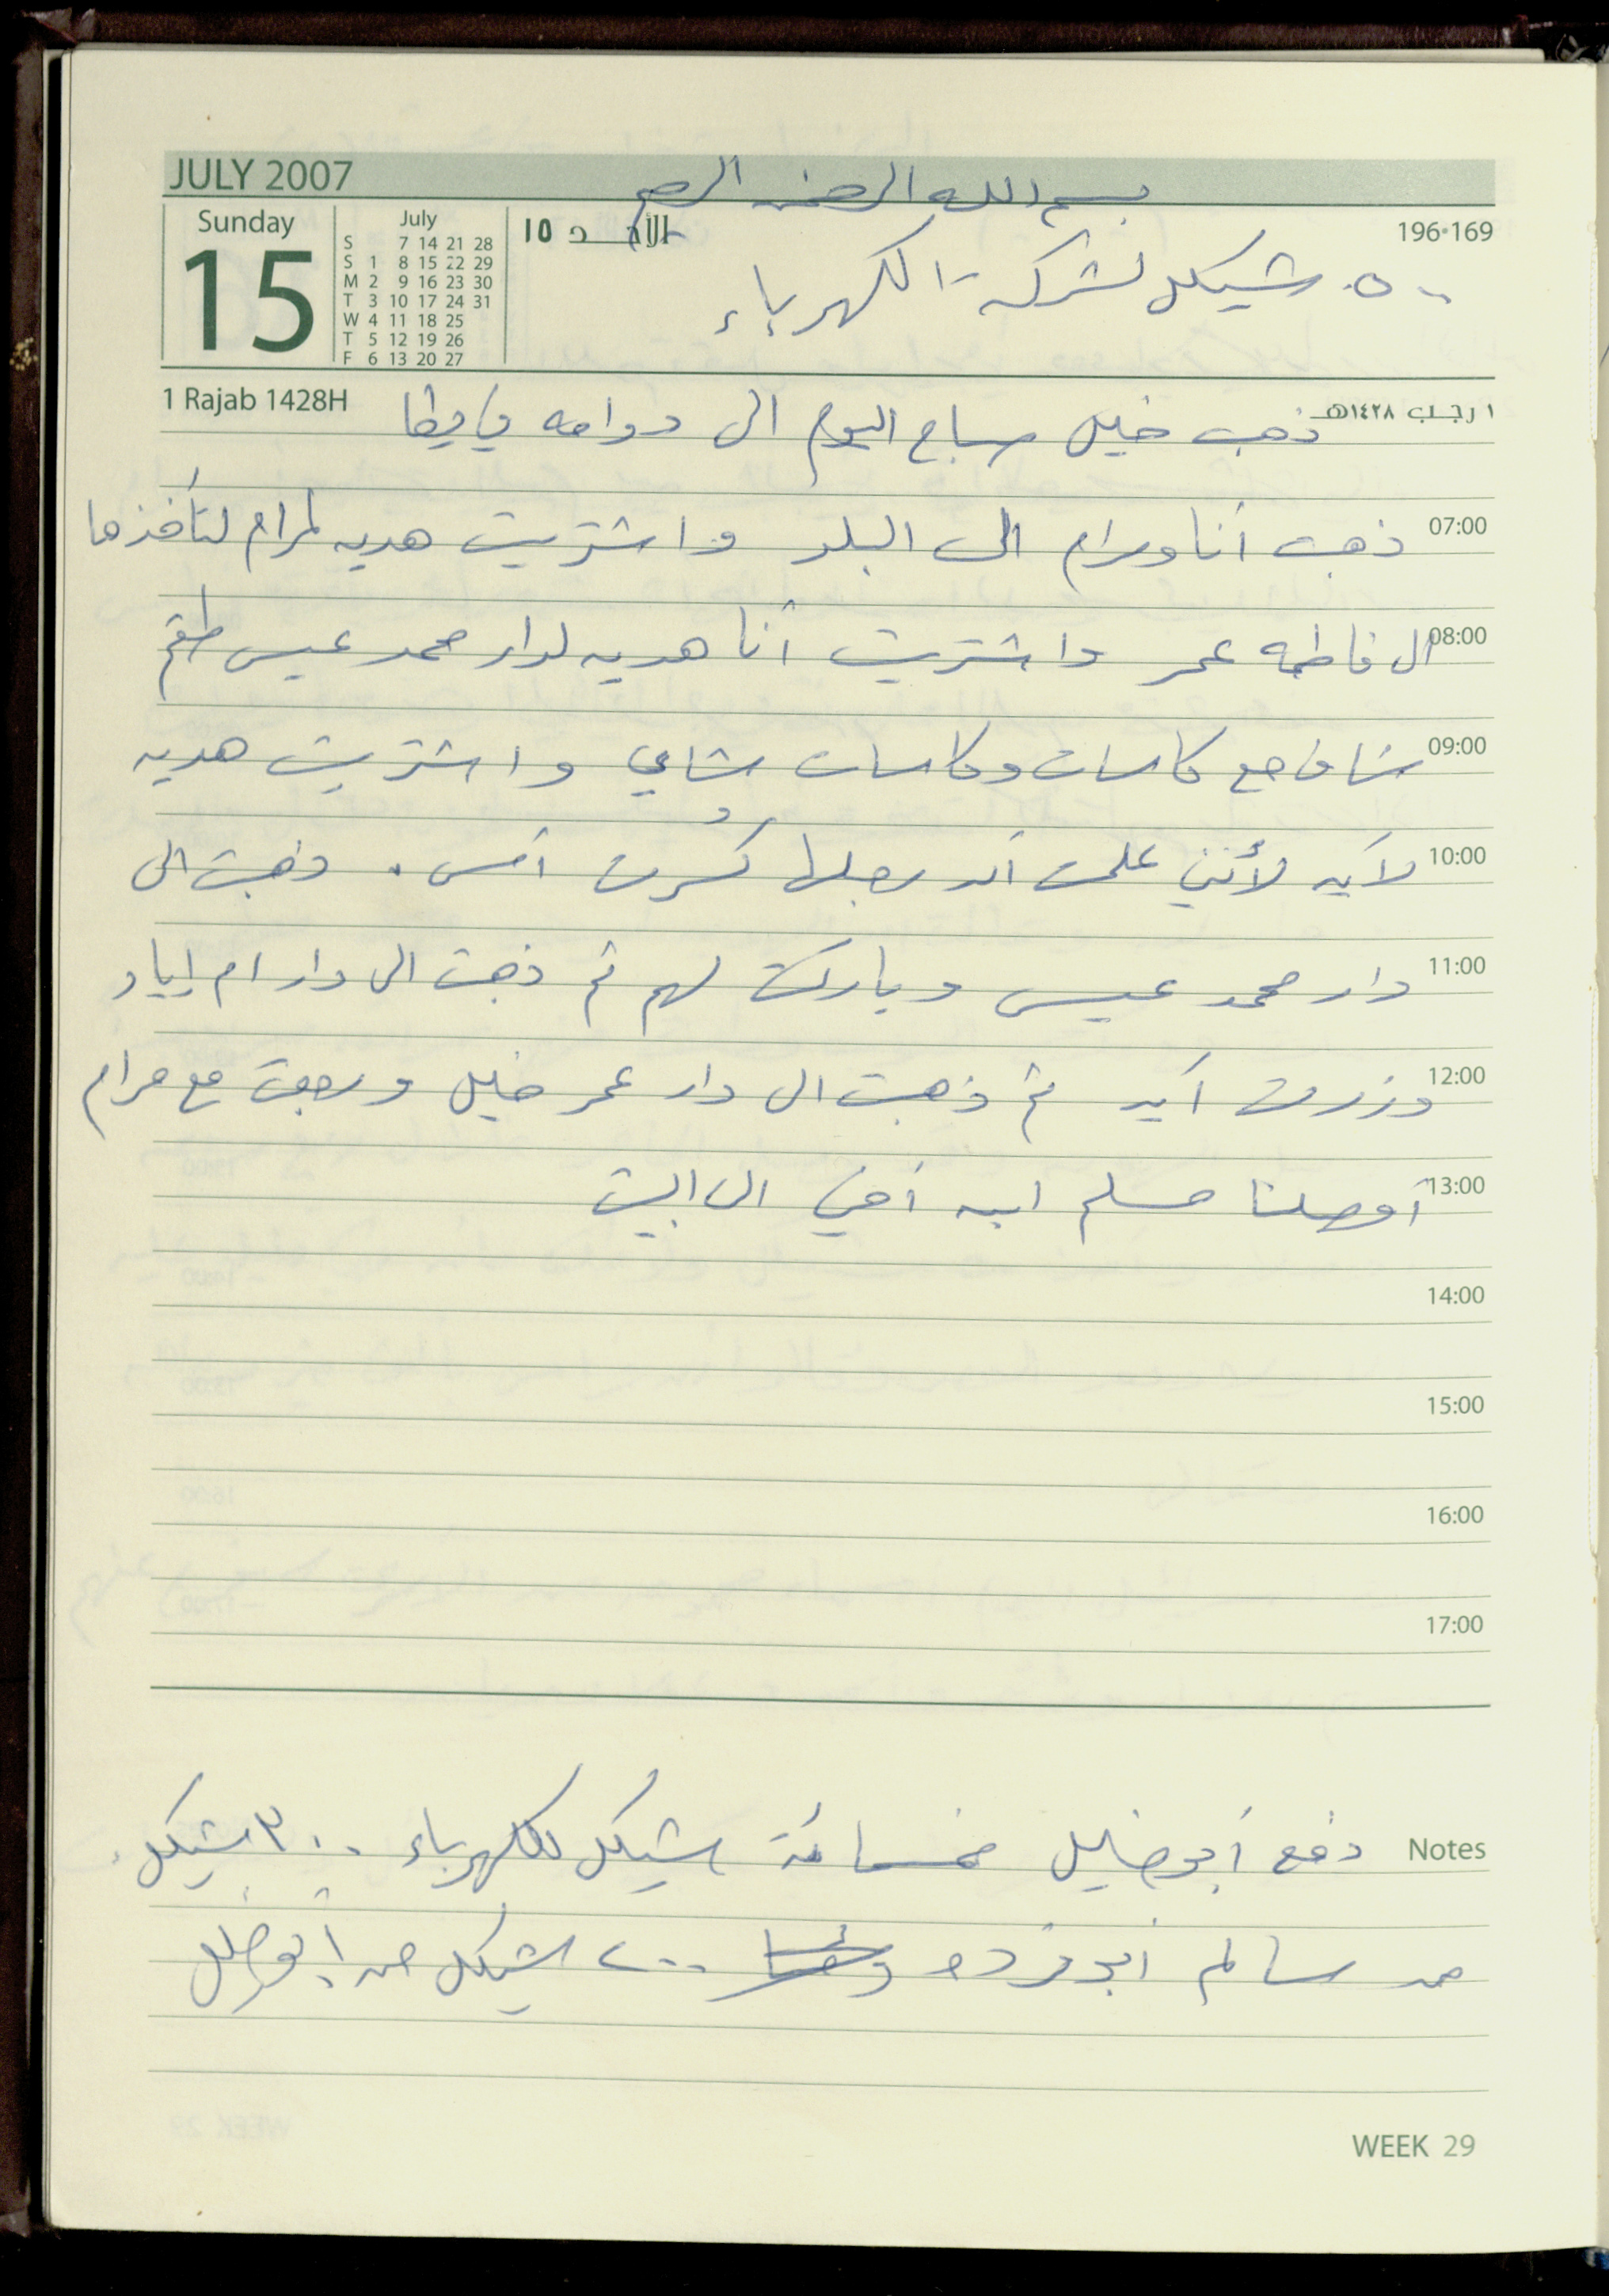 JULY 2007
بسم الله الرحمن الرحيم
Sunday
15
July
S 7 14 21 28
S 1 8 15 22 29
M 2 9 16 23 30
T 3 10 17 24 31
W 4 11 18 25
T 5 12 19 26
F 6 13 20 27
الأحد ١٥
196·169
٥٠٠ شيكل لشركة الكهرباء
1 Rajab 1428H
١ رجب ١٤٢٨هـ
ذهب خليل صباح اليوم الى دوامه في يطا
07:00
ذهبت أنا ومرام الى البلد واشتريت هديه لمرام لتأخذها
08:00
الى فاطمه عمر واشتريت أنا هديه لدار محمد عيسى طقم
09:00
شاف مع كاسات وكاسات شاي واشتريت هديه
10:00
لآيه لأنني علمت أن رجلها كُسرت أمس . ذهبت الى
11:00
دار محمد عيسى وباركت لهم ثم ذهبت الى دار ام إياد
12:00
وزرت آيه ثم ذهبت الى دار عمر خليل ورجعت مع مرام
13:00
أوصلنا مسلم ابن أخي الى البيت
14:00
15:00
16:00
17:00
Notes
دفع أبو خليل خمسمائة شيكل للكهرباء ٣٠٠ شيكل
من سالم أبو فرده ٢٠٠ شيكل من أبو خليل
WEEK 29